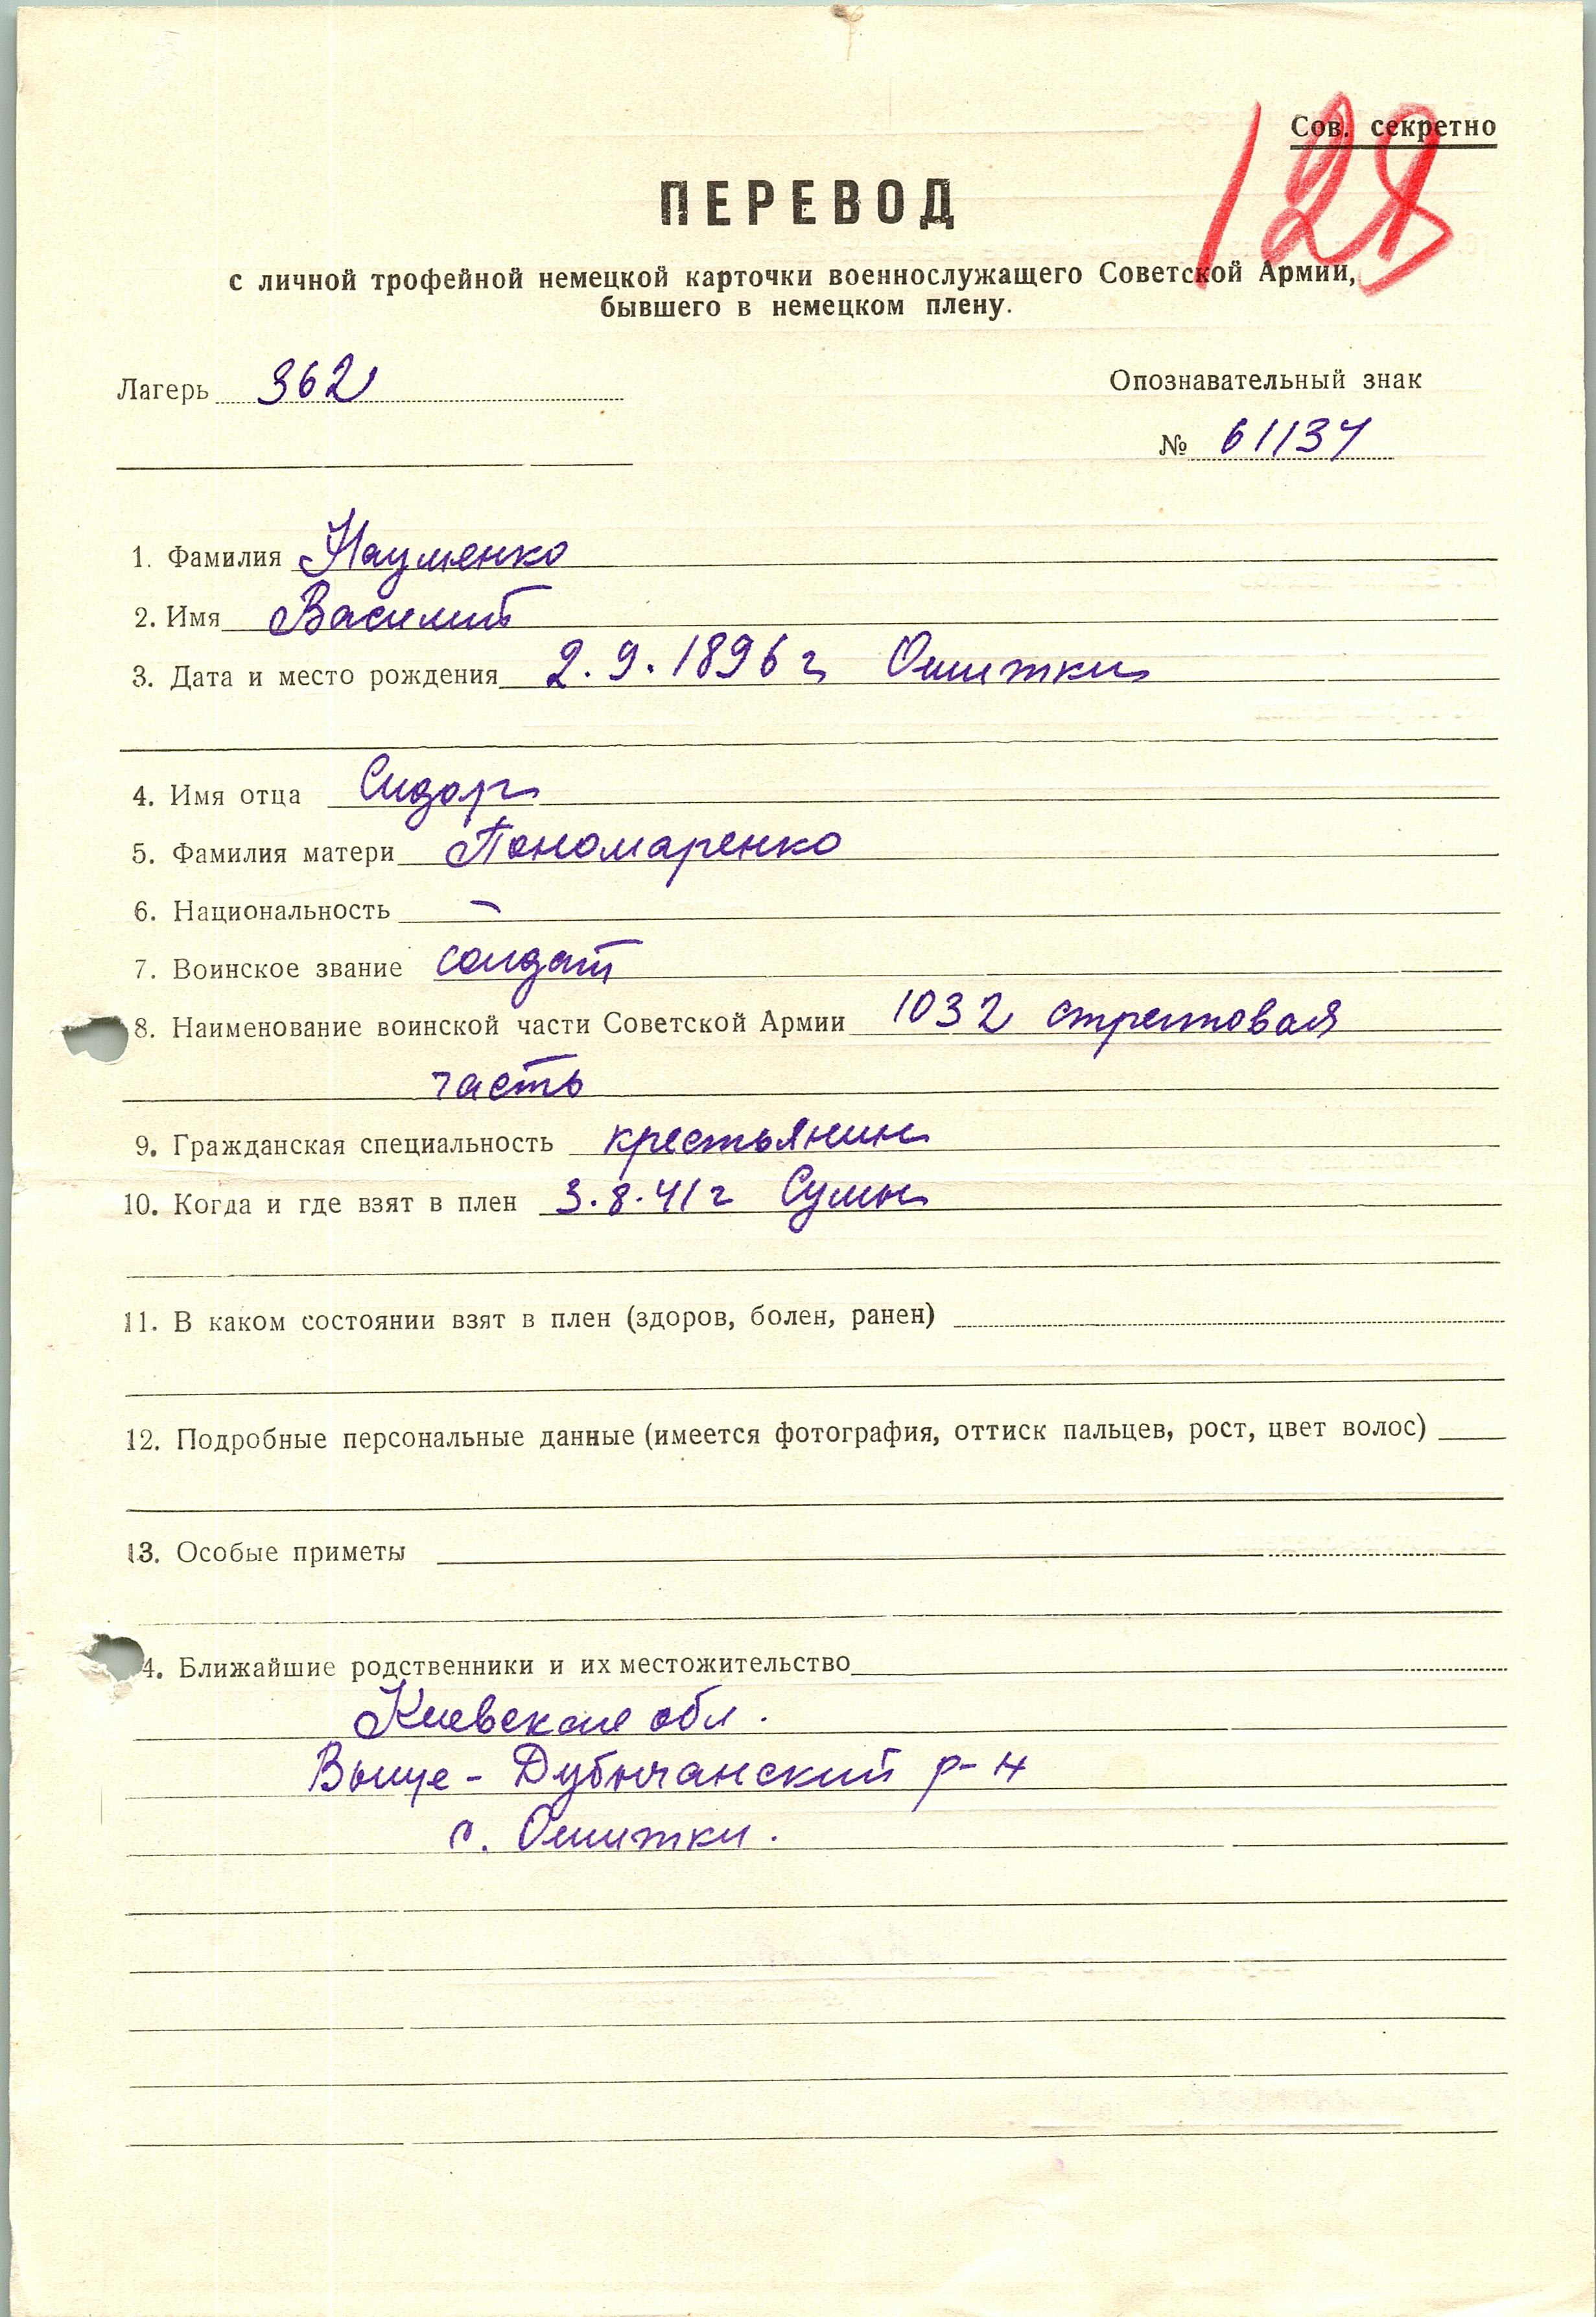 Сов. секретно
128
ПЕРЕВОД
с личной трофейной немецкой карточки военнослужащего Советской Армии,
бывшего в немецком плену.
Лагерь 362
Опознавательный знак
№ 61134
1. Фамилия Науменко
2. Имя Василий
3. Дата и место рождения 2.9.1896 г Ошитки
4. Имя отца Сидор
5. Фамилия матери Пономаренко
6. Национальность –
7. Воинское звание солдат
8. Наименование воинской части Советской Армии 1032 стрелковая
часть
9. Гражданская специальность крестьянин
10. Когда и где взят в плен 3.8.41 г Сумы
11. В каком состоянии взят в плен (здоров, болен, ранен)
12. Подробные персональные данные (имеется фотография, оттиск пальцев, рост, цвет волос)
13. Особые приметы
4. Ближайшие родственники и их местожительство
Киевская обл.
Выще-Дубычанский р-н
с. Ошитки.